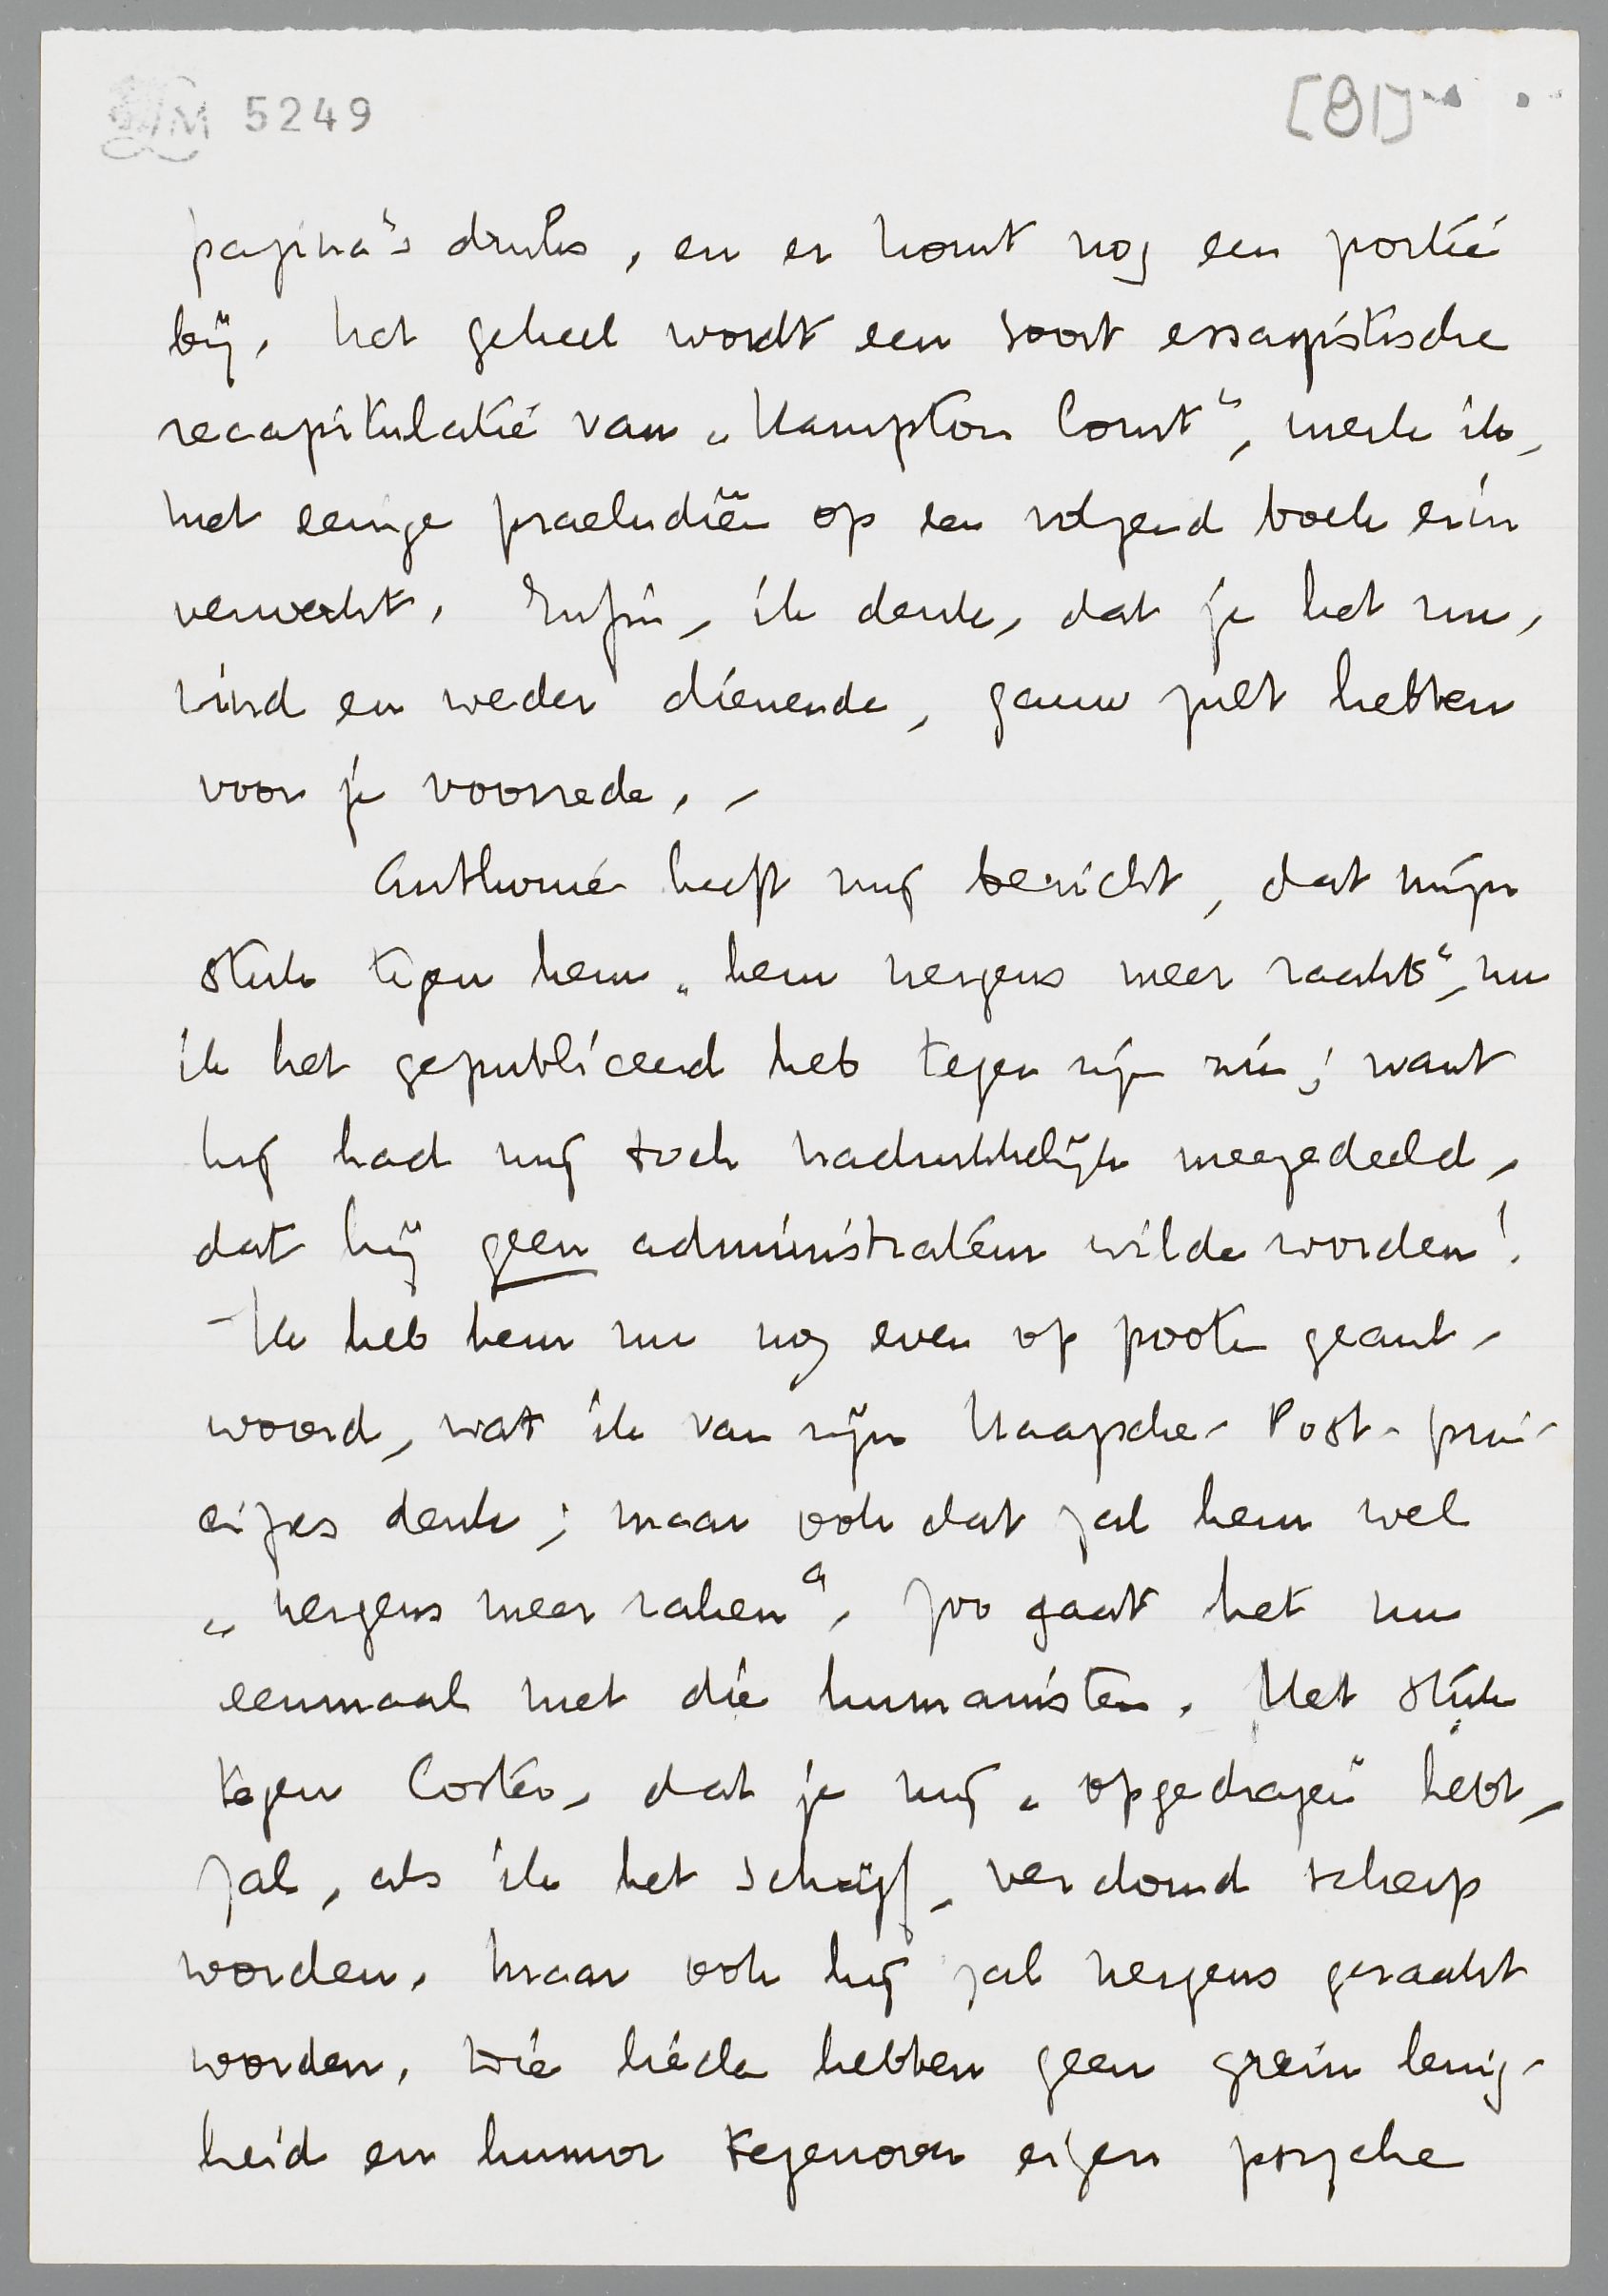 LM 5249
[81]
pagina's druks, en er komt nog een portie
bij. Het geheel wordt een soort essayistische
recapitulatie van „Hampton Court", merk ik,
met eenige praeludiën op een volgend boek erin
verwerkt. Enfin, ik denk, dat je het nu,
wind en weder dienende, gauw zult hebben
voor je voorrede. -
Anthonie heeft mij bericht, dat mijn
stuk tegen hem „hem nergens meer raakt", nu
ik het gepubliceerd heb tegen zijn zin; want
hij had mij toch nadrukkelijk meegedeeld,
dat hij geen administrateur wilde worden!
- Ik heb hem nu nog even op poote geant-
woord, wat ik van zijn Haagsche-Post-prin-
cipes denk; maar ook dat zal hem wel
„nergens meer raken". Zoo gaat het nu
eenmaal met die humanisten. Het stuk
tegen Coster, dat je mij „opgedragen" hebt,
zal, als ik het schrijf, verdomd scherp
worden. Maar ook hij zal nergens geraakt
worden. Die lieden hebben geen grein lenig-
heid en humor tegenover eigen psyche